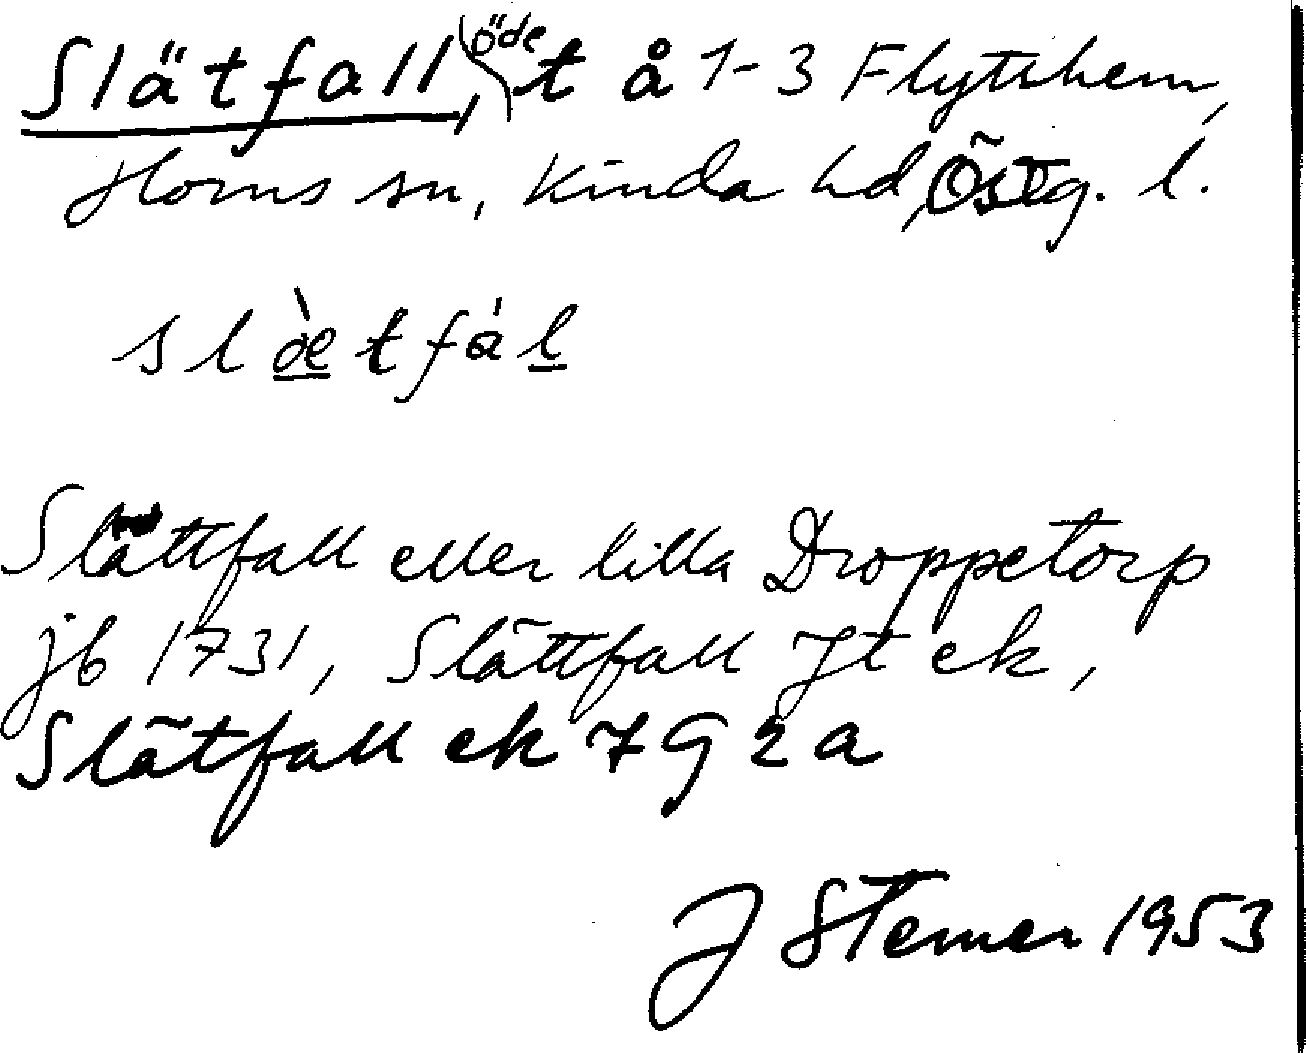 Slätfall, öde t å 1-3 Flytthem,
Horns sn, Kinda hd, Östg. l.
slæ̀tfál
Slättfall eller lilla Droppetorp
jb 1731, Slättfall Jt ek,
Slätfall ek 7 G 2 a
J Stemer 1953